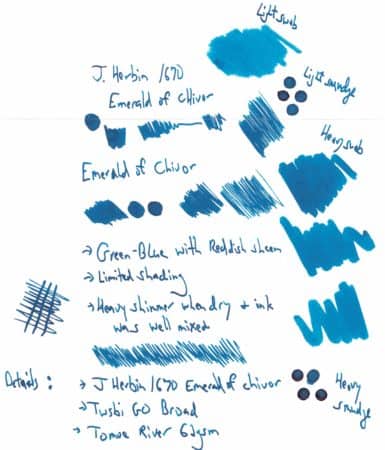 Light swab
J. Herbin 1670
Emerald of Chivor
Light smudge
Heavy swab
Emerald of Chivor
→ Green-Blue with Reddish sheen
→ Limited shading
→ Heavy shimmer when dry + ink
was well mixed
Details:
→ J Herbin 1670 Emerald of chivor
→ Twsbi GO Broad
→ Tomoe River 62gsm
Heavy
smudge